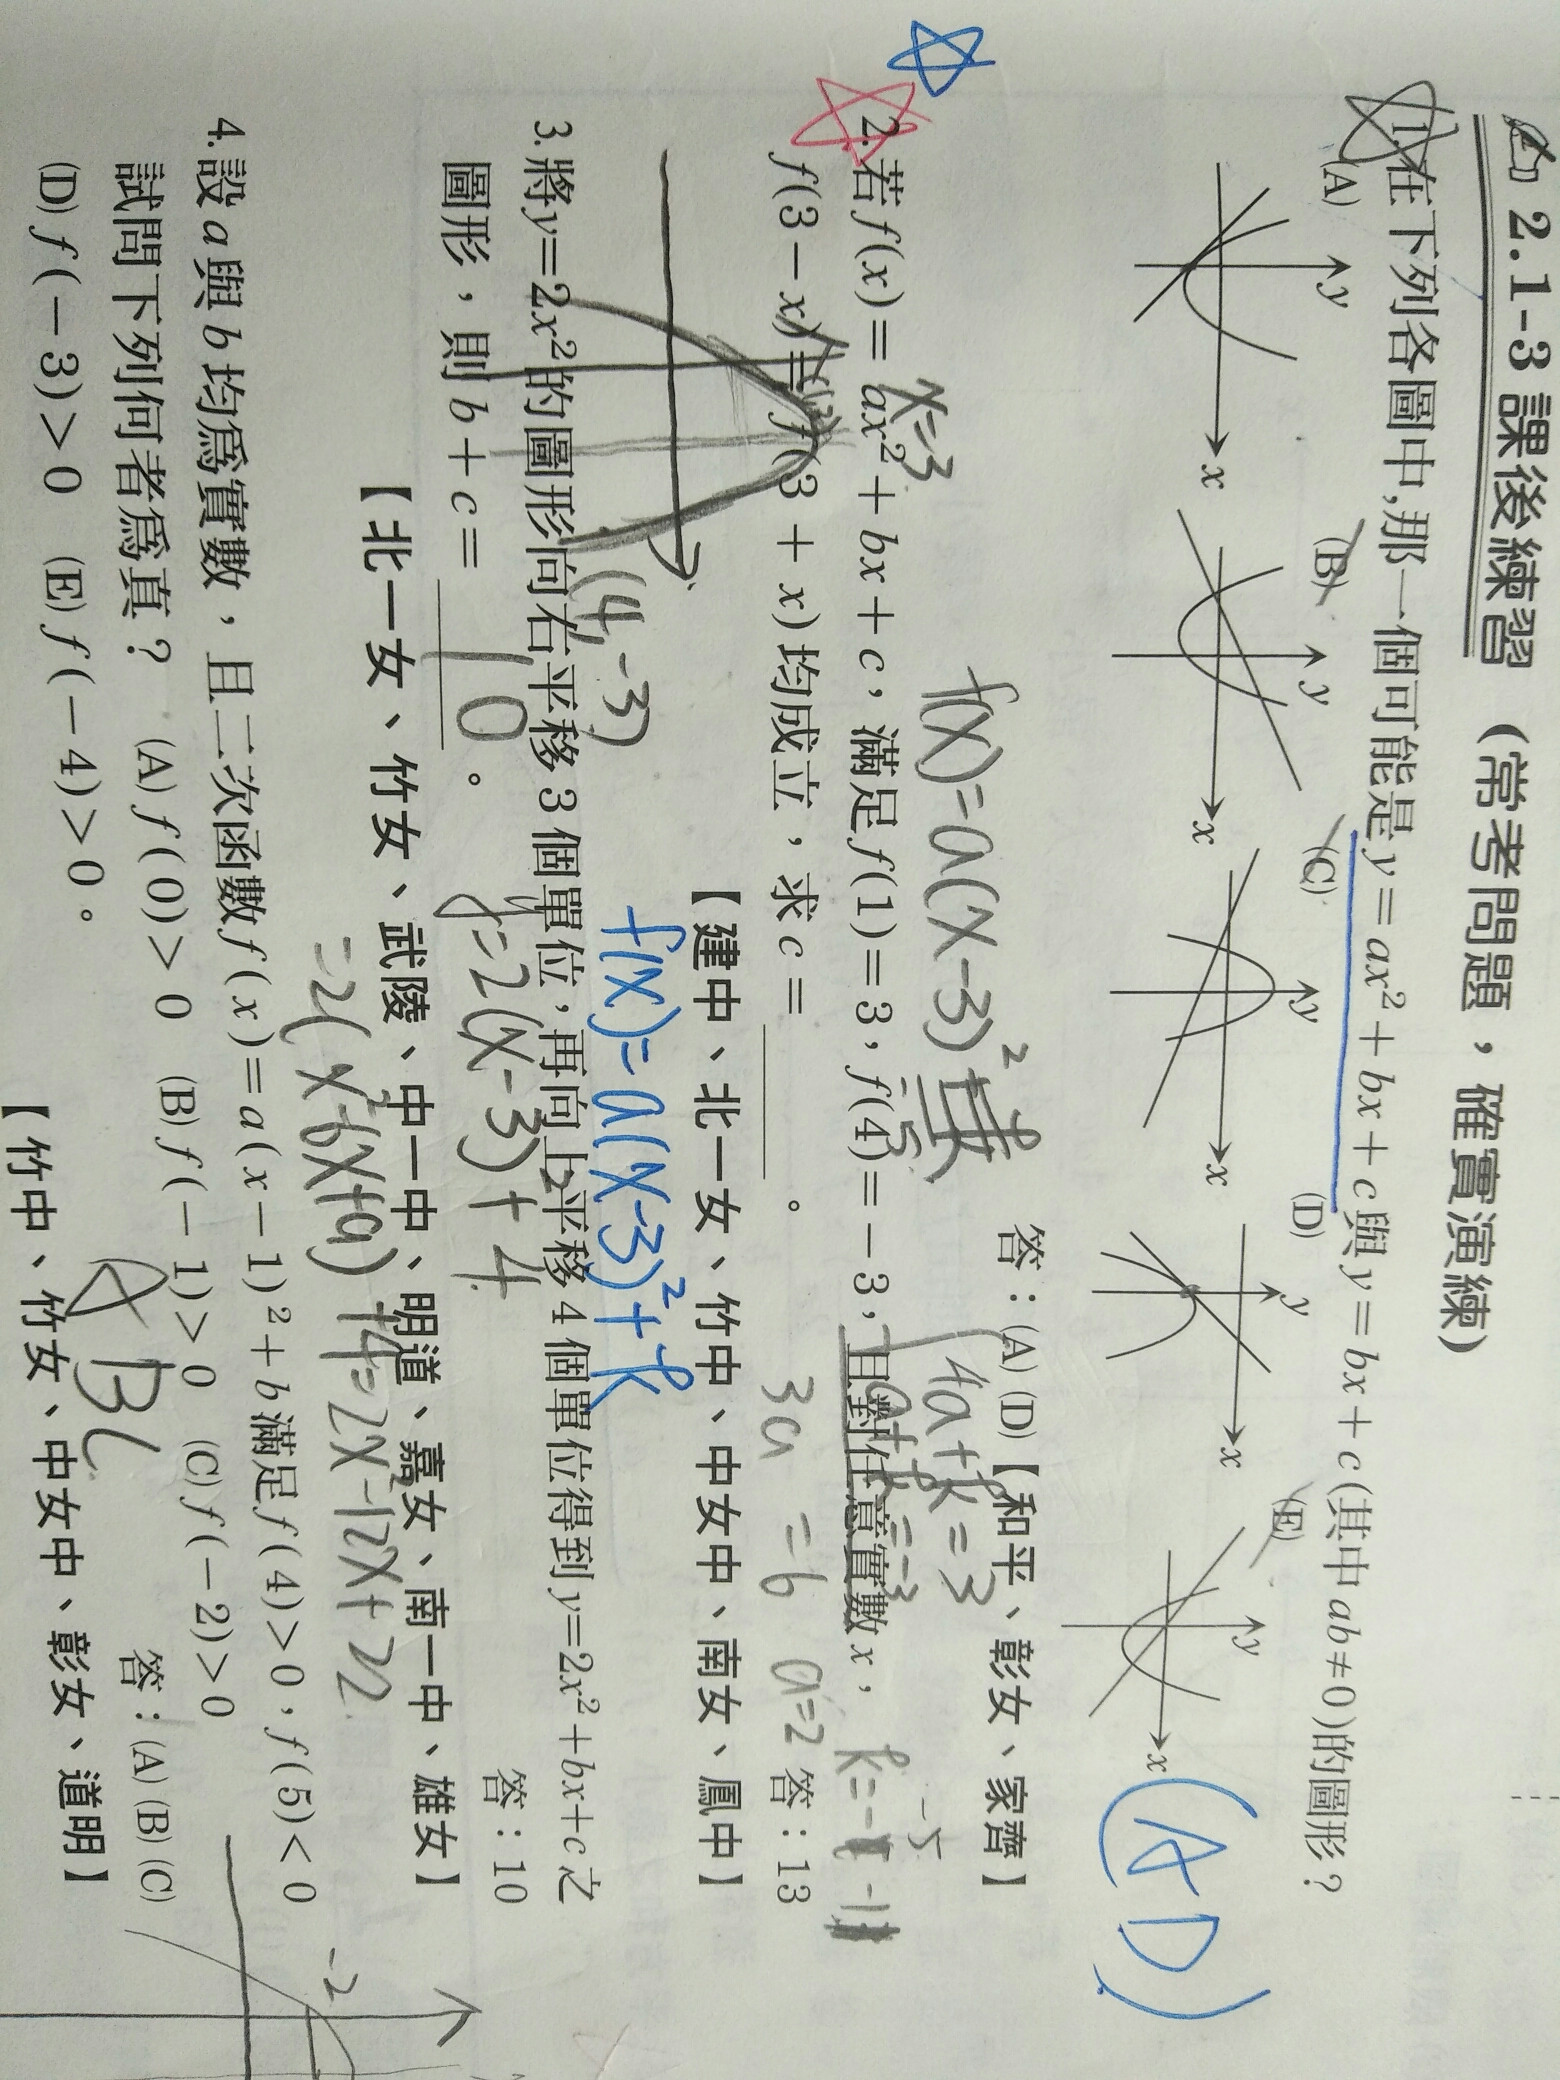 ✍ 2.1-3 課後練習 (常考問題，確實演練)
1. 在下列各圖中,那一個可能是 y = ax² + bx + c 與 y = bx + c (其中 ab ≠ 0)的圖形？
(A) (B) (C) (D) (E)
y y y y y
x x x x x
(A D)
答：(A) (D)【和平、彰女、家齊】
x=3
f(x)=a(x-3)²+k
4a+k=3
a+k=-3
2. 若 f(x) = ax² + bx + c，滿足 f(1) = 3, f(4) = -3, 且對任意實數 x，
f(3 - x) = f(3 + x) 均成立，求 c = ______。
3a = 6 a=2
k=-5
答：13
【建中、北一女、竹中、中女中、南女、鳳中】
f(x)=a(x-3)²+k
(4,-3)
3. 將 y=2x² 的圖形向右平移 3 個單位, 再向上平移 4 個單位得到 y=2x²+bx+c 之
圖形，則 b + c = 10。
y=2(x-3)²+4
答：10
【北一女、竹女、武陵、中一中、明道、嘉女、南一中、雄女】
=2(x²-6x+9)+4=2x²-12x+22
4. 設 a 與 b 均為實數，且二次函數 f(x) = a(x-1)² + b 滿足 f(4) > 0, f(5) < 0
試問下列何者為真？ (A) f(0) > 0 (B) f(-1) > 0 (C) f(-2) > 0
(D) f(-3) > 0 (E) f(-4) > 0。
A B C
答：(A) (B) (C)
【竹中、竹女、中女中、彰女、道明】
-2